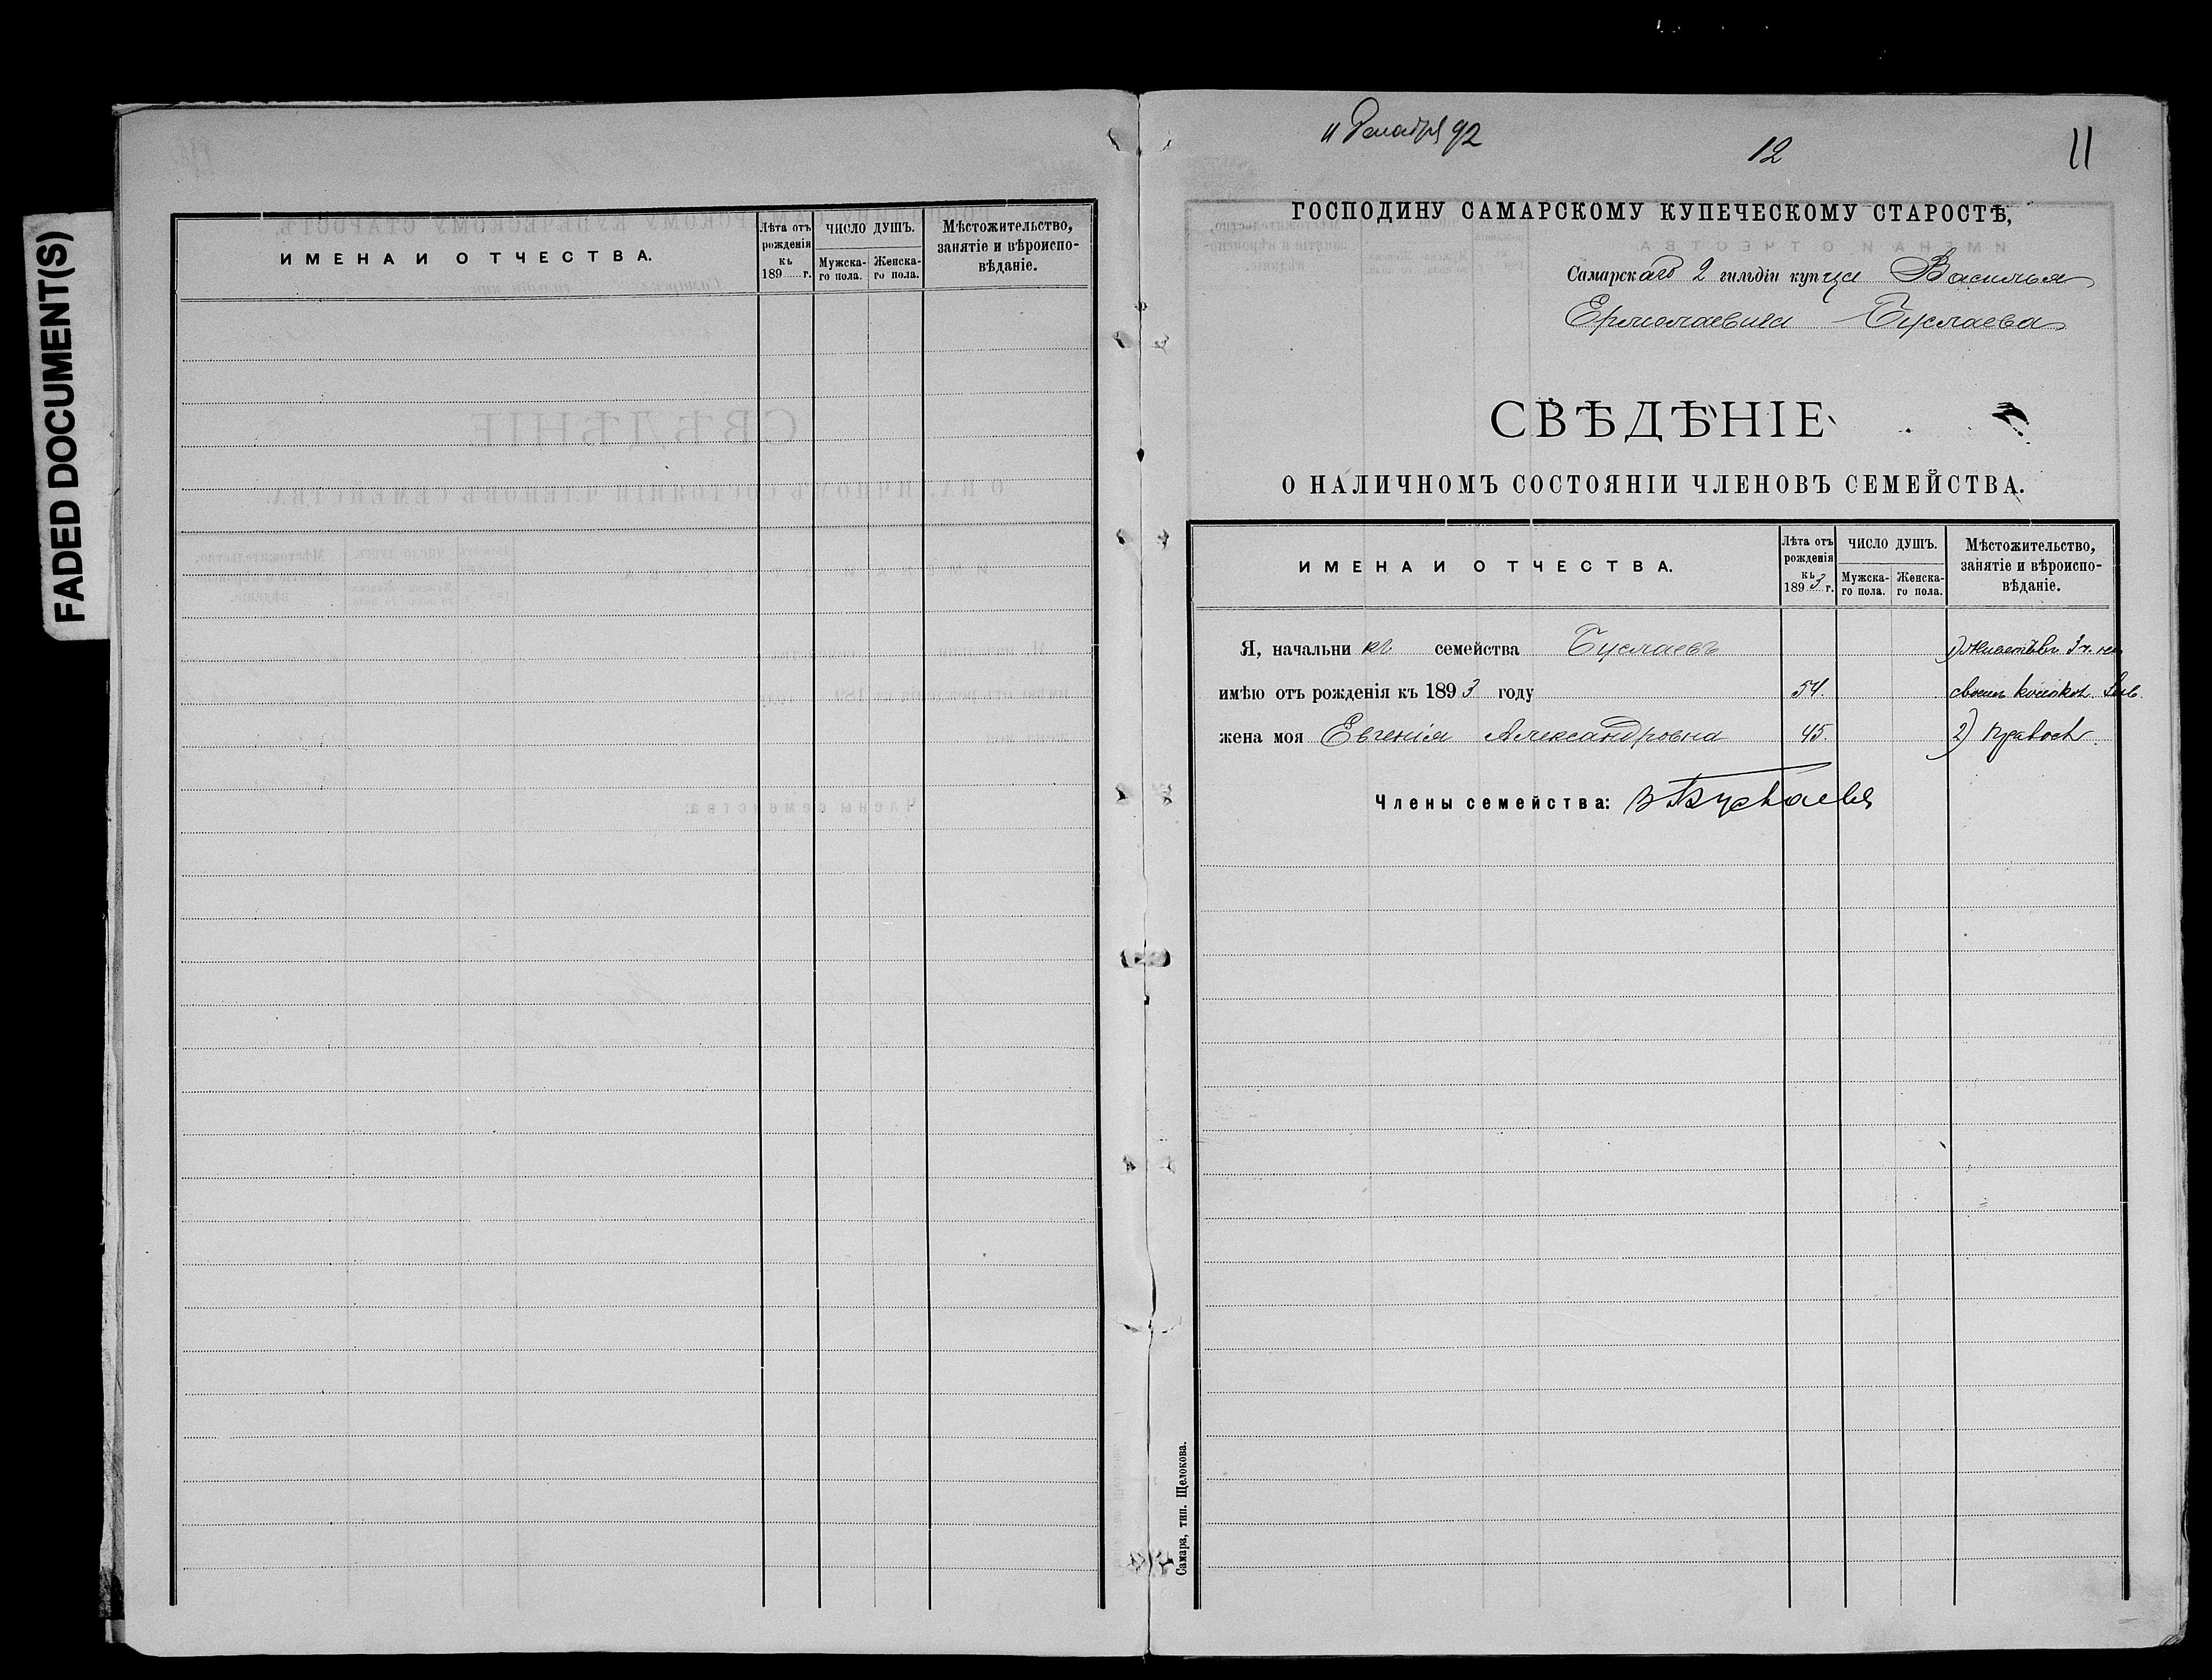 FADED DOCUMENT(S)
ИМЕНА И ОТЧЕСТВА.
Лѣта отъ рожденія къ 189 г.
ЧИСЛО ДУШЪ.
Мужска-го пола.
Женска-го пола.
Мѣстожительство,
занятіе и вѣроиспо-
вѣданіе.
11 Декабря 92
12
11
ГОСПОДИНУ САМАРСКОМУ КУПЕЧЕСКОМУ СТАРОСТѢ,
Самарскаго 2 гильдіи купца Василья
Ермолаевича Буслаева
СВѢДѢНІЕ
О НАЛИЧНОМЪ СОСТОЯНІИ ЧЛЕНОВЪ СЕМЕЙСТВА.
ИМЕНА И ОТЧЕСТВА.
Лѣта отъ рожденія къ 1893 г.
ЧИСЛО ДУШЪ.
Мужска-го пола.
Женска-го пола.
Мѣстожительство,
занятіе и вѣроиспо-
вѣданіе.
Я, начальникъ семейства Буслаевъ 1) 3 ч.
имѣю отъ рожденія къ 1893 году 54. своемъ
жена моя Евгенія Александровна 45. 2) Правосл.
Члены семейства: В Буслаевъ
Самара, тип. Щелокова.